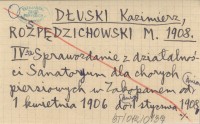 DŁUSKI Kazimierz,
ROZPĘDZICHOWSKI M. 1908.
IVte Sprawozdanie z działalności
Sanatoryum dla chorych
piersiowych w Zakopanem od
1 kwietnia 1906 do 1 stycznia
1908